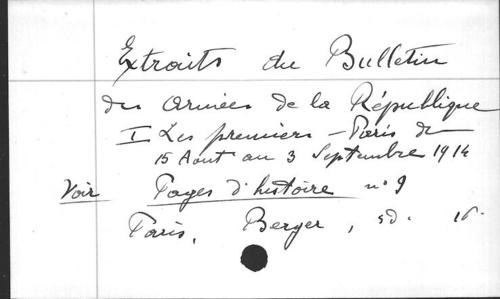 Extraits du Bulletin
des armées de la République
I Les premiers - Paris du
15 Aout au 3 Septembre 1914
Voir Pages d'histoire n° 9
Paris, Berger, sd. 16.